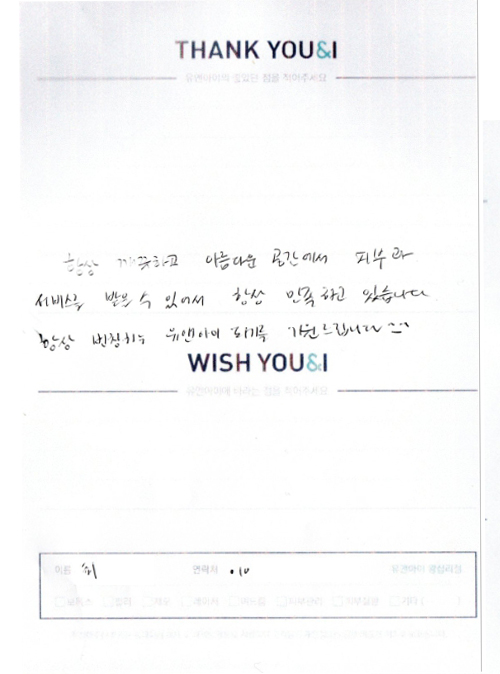 THANK YOU&I
유앤아이의 좋았던 점을 적어주세요
항상 깨끗하고 아름다운 공간에서 피부과
서비스를 받을 수 있어서 항상 만족하고 있습니다.
항상 번창하는 유앤아이 되기를 기원드립니다 ^^
WISH YOU&I
유앤아이에 바라는 점을 적어주세요
이름 연락처 .10 유앤아이
보톡스 필러 제모 레이저 여드름 기타 (          )